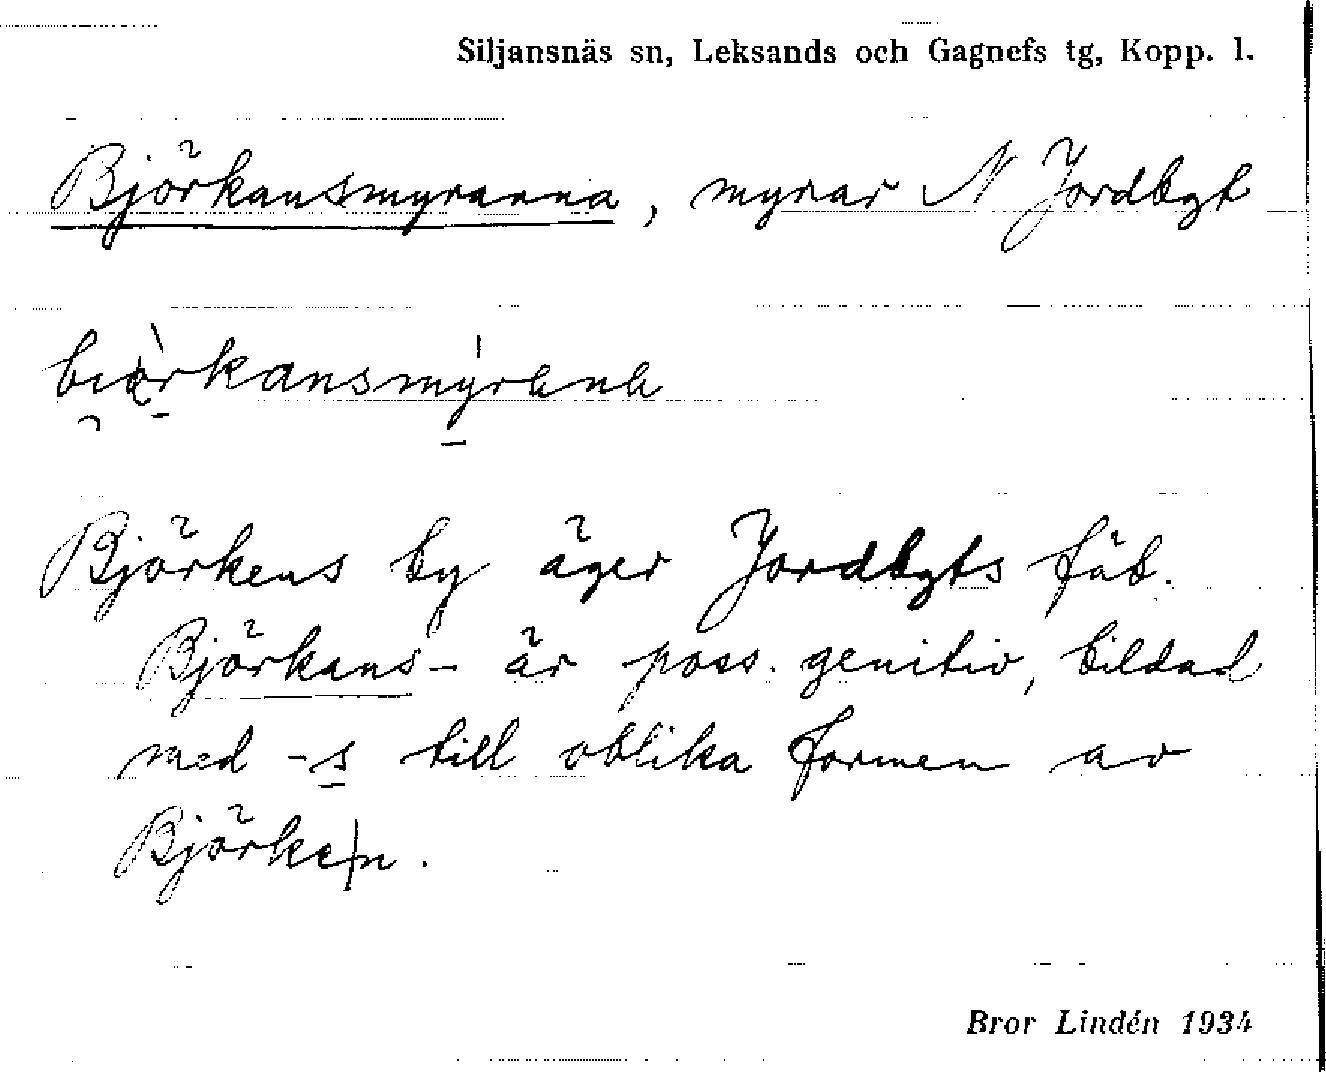 Siljansnäs sn, Leksands och Gagnefs tg, Kopp. l.
Björkansmyrarna, myrar N Jordbgt
Björkens by äger Jordbgts fäb.
Björkans- är poss. genitiv, bildad
med -s till oblika formen av
Björke|n.
Bror Lindén 1934